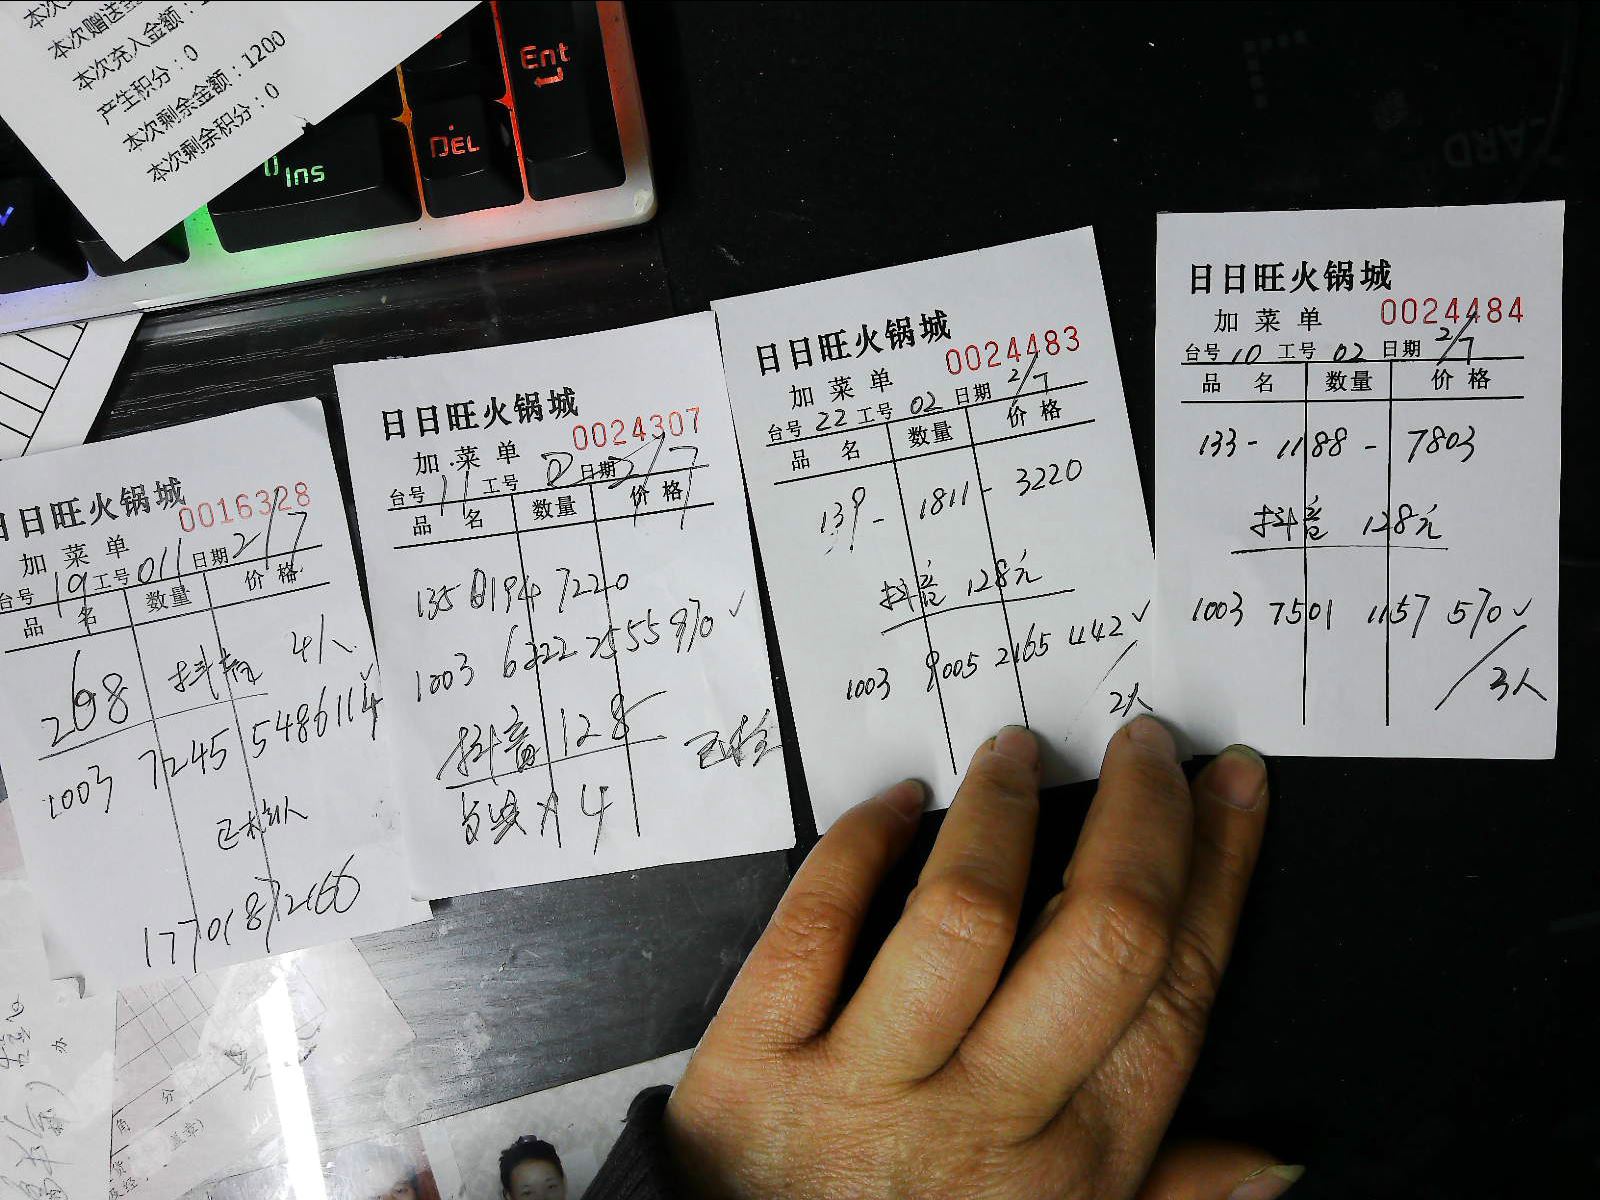 本次赠送金
本次充入金额：
产生积分：0
本次剩余金额：1200
本次剩余积分：0
Ent
DEL
0
Ins
日日旺火锅城
加菜单 0016328
台号 19 工号 011 日期 2/7
品名 数量 价格
268 抖音 4人
1003 7245 5486114
17701872166
日日旺火锅城
加菜单 0024307
台号 11 工号 02 日期 2/7
品名 数量 价格
135 0194 7220
1003 6322 2555 970 ✓
抖音 128
已核
4
日日旺火锅城
加菜单 0024483
台号 22 工号 02 日期 2/7
品名 数量 价格
139 - 1811 - 3220
抖音 128元
1003 9005 2165 442 ✓
2人
日日旺火锅城
加菜单 0024484
台号 10 工号 02 日期 2/7
品名 数量 价格
133 - 1188 - 7803
抖音 128元
1003 7501 1157 570 ✓
3人
角 分
盖章)